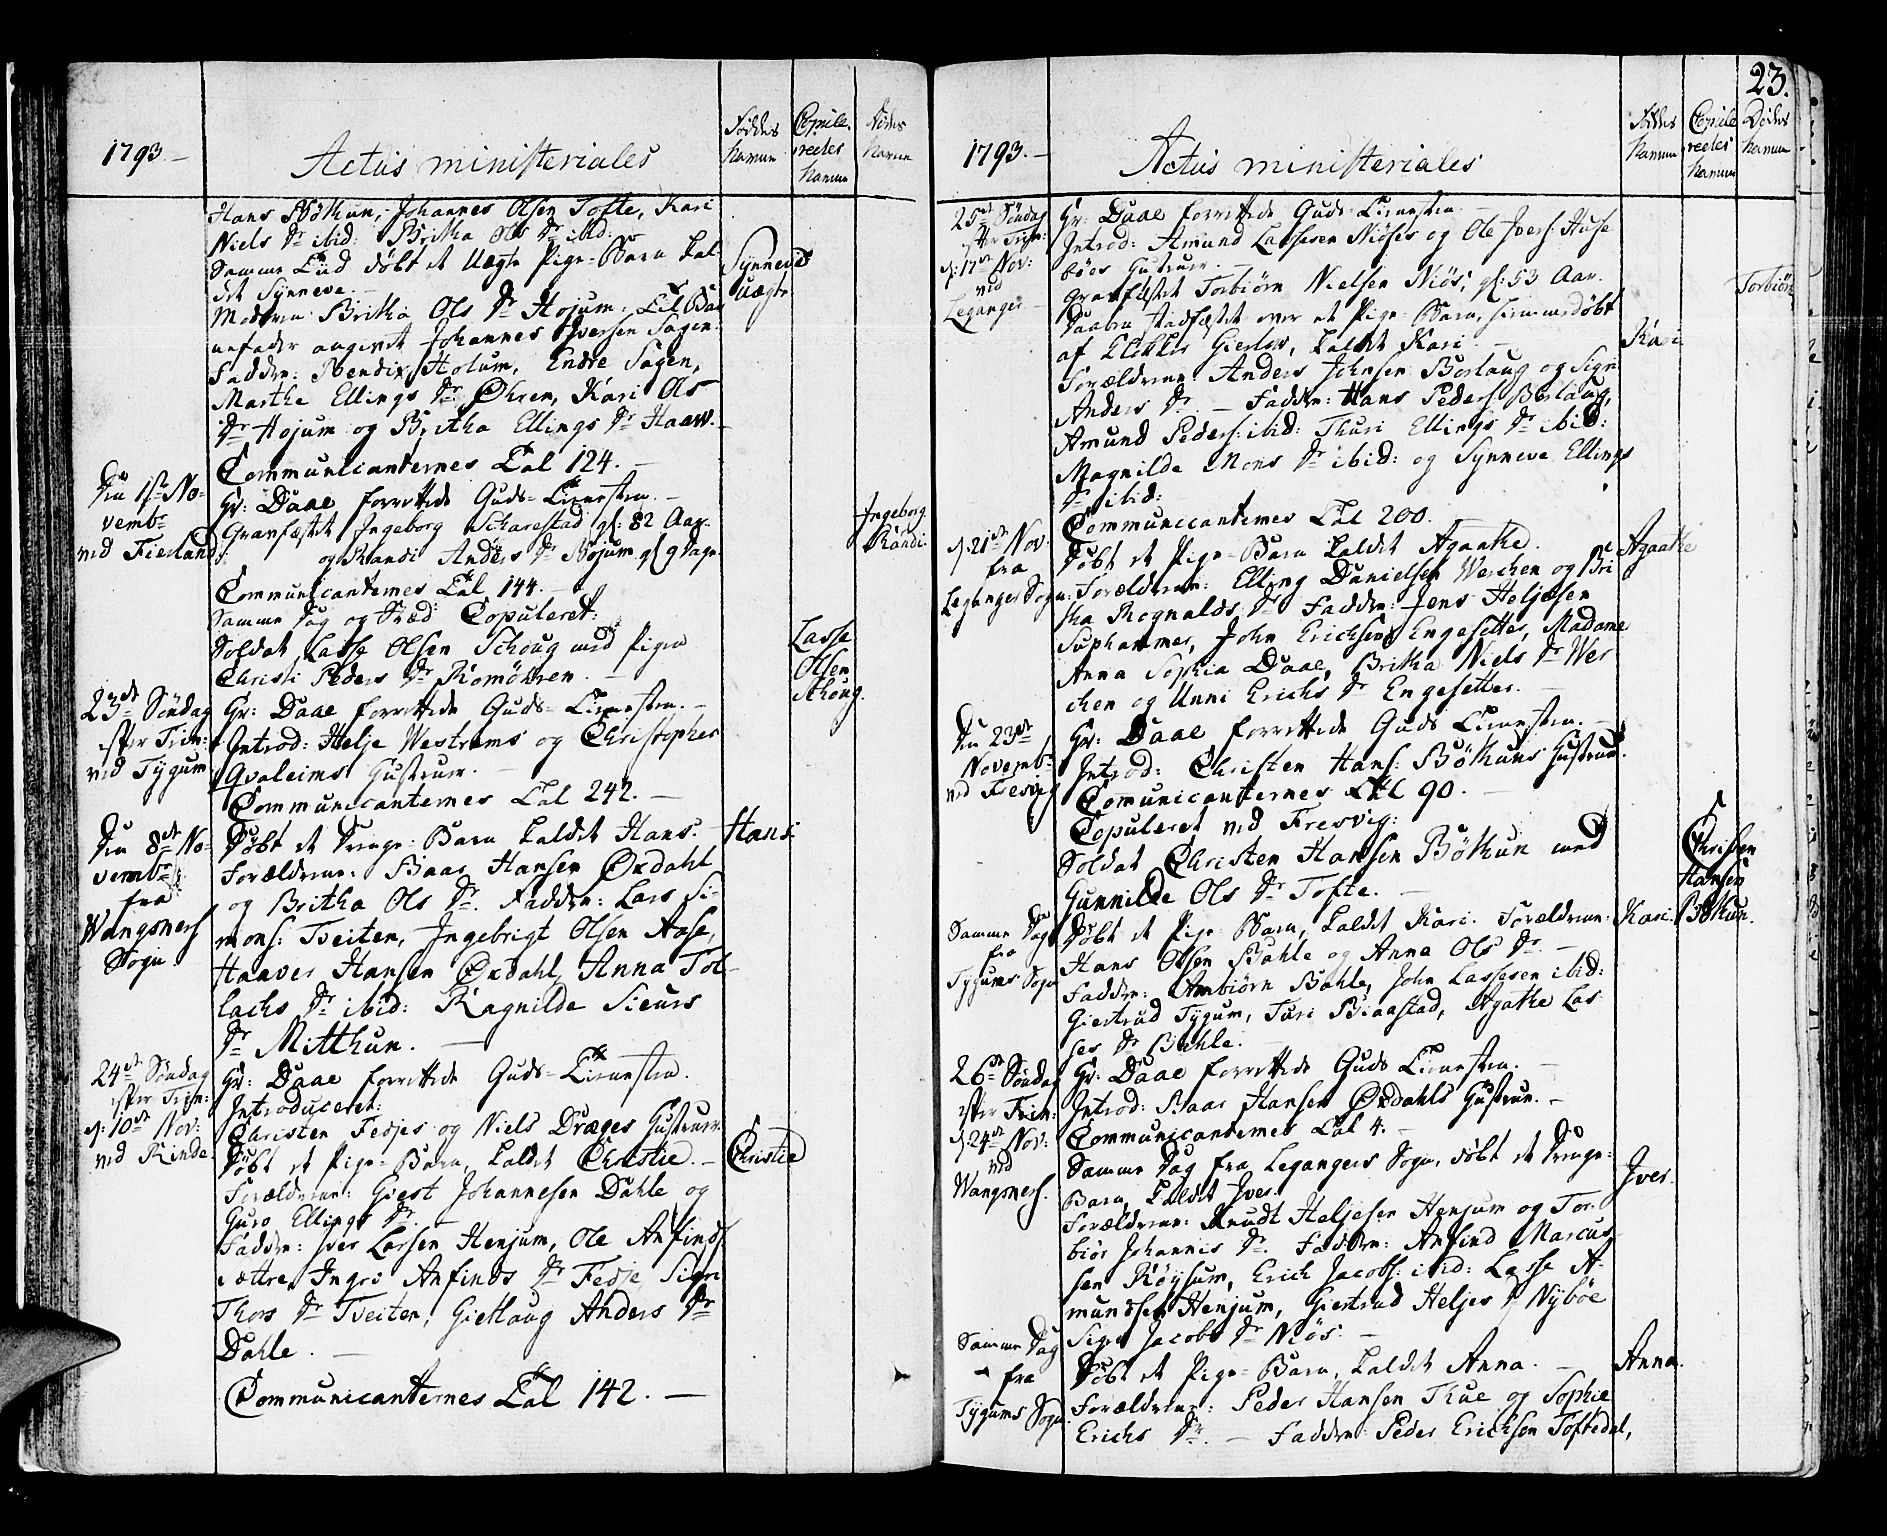 1793.
Actus ministeriales
Føddes Navne
Copuleredes Navne
Dødes Navne
Hans Bøthun, Johannes Olsen Tofte, Kari
Niels Dr ibid: Britha Ols Dr ibid:
Samme Tiid døbt et Uægte Pige-Barn kal-
det Synneve.
Synneve
Uægte
Moderen Britha Ols Dr Hojum: Til Bar
nefader angivet Johannes Iversen Sagen.
Faddere: Bendix Holum, Endre Sagen,
Marthe Ellings Dr Øhren, Kari Ols
Dr Hojum og Britha Ellings Dr Haaw.
Communicanternes Tal 124.
Den 1ste No-
vembr
ved Fierland
Hr: Daae forrettede Guds-Tienesten.
Gravfæstet Ingeborg Scharestad gl: 82 Aar.
og Randi Anders Dr Bøjum gl 9 Dage
Ingeborg
Randi
Communicanternes Tal 144.
Samme Dag og Stæd Copuleret:
Soldat Lasse Olsen Schoug med Pigen
Christi Peders Dr Romøhren.
Lasse
Olsen
Schoug.
23de Søndag
efter Trin:
ved Tygum
Hr: Daae forrettede Guds-Tienesten.
Introd: Helje Westrems og Christopher
Qvaleims Hustruer.
Communicanternes Tal 242.
Den 8de No-
vembr
fra
Wangsness
Sogn
Døbt et Drenge-Barn kaldet Hans.
Hans.
Forældrene: Baar Hansen Oxdahl
og Britha Ols Dr. Faddere: Lars Si-
mons: Tveiten, Ingebrigt Olsen Aase,
Haaver Hansen Oxdahl, Anna Tol-
lachs Dr ibid: Ragnilde Siurs
Dr Mitthun.
24de Søndag
efter Trin:
d: 10de Nov:
ved Rinde
Hr: Daae forrettede Guds-Tienesten.
Introduceret:
Christen Fedjes og Niels Dræges Hustruer
Døbt et Pige-Barn, kaldet Christie.
Christie
Forældrene: Giest Johannesen Dahle og
Guro Ellings Dr.
Faddere: Iver Larsen Henjum, Ole Anfinds
sættre, Ingri Anfinds Dr Fedje Sigri
Thors Dr Tveiten, Gietlaug Anders Dr
Dahle.
Communicanternes Tal 142.
23.
1793.
Actus ministeriales
Føddes Navne
Copuleredes Navne
Dødes Navne
25de Søndag
efter Trin:
d: 17de Nov:
ved
Leganger
Hr: Daae forrettede Guds-Tienesten.
Introd: Amund Lassesen Niøses og Ole Ivers: Huse
bøes Hustruer.
Gravfæstet Torbiørn Nielsen Niøs, gl: 53 Aar.
Torbiørn
Daaben stadfæstet over et Pige-Barn, hiemmedøbt
af Klokker Gierløv, kaldet Kari.
Kari
Forældrene: Anders Johnsen Borlaug og Sigri
Anders Dr. Faddere: Hans Peders: Borlaug,
Amund Peders: ibid: Thuri Ellings Dr ibid:
Magnilde Mons Dr ibid: og Synneve Ellings
Dr ibid:
Communicanternes Tal 200.
d: 21de Nov:
fra
Leganger Sogn:
Døbt et Pige-Barn kaldet Agaathe.
Agaathe
Forældrene: Elling Danielsen Werchen og Bri
tha Rognalds Dr Faddere: Jens Heljesen
Suphammer, John Erichsen Engesetter, Madame
Anna Sophia Daae, Britha Niels Dr Wer
chen og Unni Erichs Dr Engesetter.
Den 23de
Novembr
ved Fresvig
Hr: Daae forrettede Guds Tienesten.
Introd: Christen Hans: Bøthuns Hustrue.
Communicanternes Tal 90.
Copuleret ved Fresvig:
Soldat Christen Hansen Bøthun med
Gunnilde Ols Dr Tofte.
Christen
Hansen
Bøthun.
Samme Dag
fra
Tygums Sogn
Døbt et Pige-Barn, kaldet Kari. Forældrene:
Kari.
Hans Olsen Bahle og Anna Ols Dr.
Faddere: Anbiørn Bahle, John Lassesen ibid:
Giertrud Tygum, Turi Biaastad, Agathe Las
ses Dr Bahle.
26de Søndag
efter Trin:
d: 24de Nov:
ved
Wangsness.
Hr: Daae forrettede Guds Tienesten.
Introd: Baar Hansen Oxdahls Hustrue.
Communicanternes Tal 4.
Samme Dag fra Legangers Sogn, døbt et Drenge-
Barn, kaldet Iver.
Iver.
Forældrene: Knudt Heljesen Henjum og Tor-
biør Johannis Dr. Faddere: Anfind Marcus
sen Røysum, Erich Jacobs: ibid: Lasse A-
mundsen Henjum, Giertrud Heljes Dr Nybøe
Sigri Jacobs Dr Niøs.
Samme Dag
fra
Tygums Sogn:
Døbt et Pige-Barn, kaldet Anna.
Anna.
Forældrene: Peder Hansen Thue og Sophie
Erichs Dr. Faddere: Peder Erichsen Toftedal,